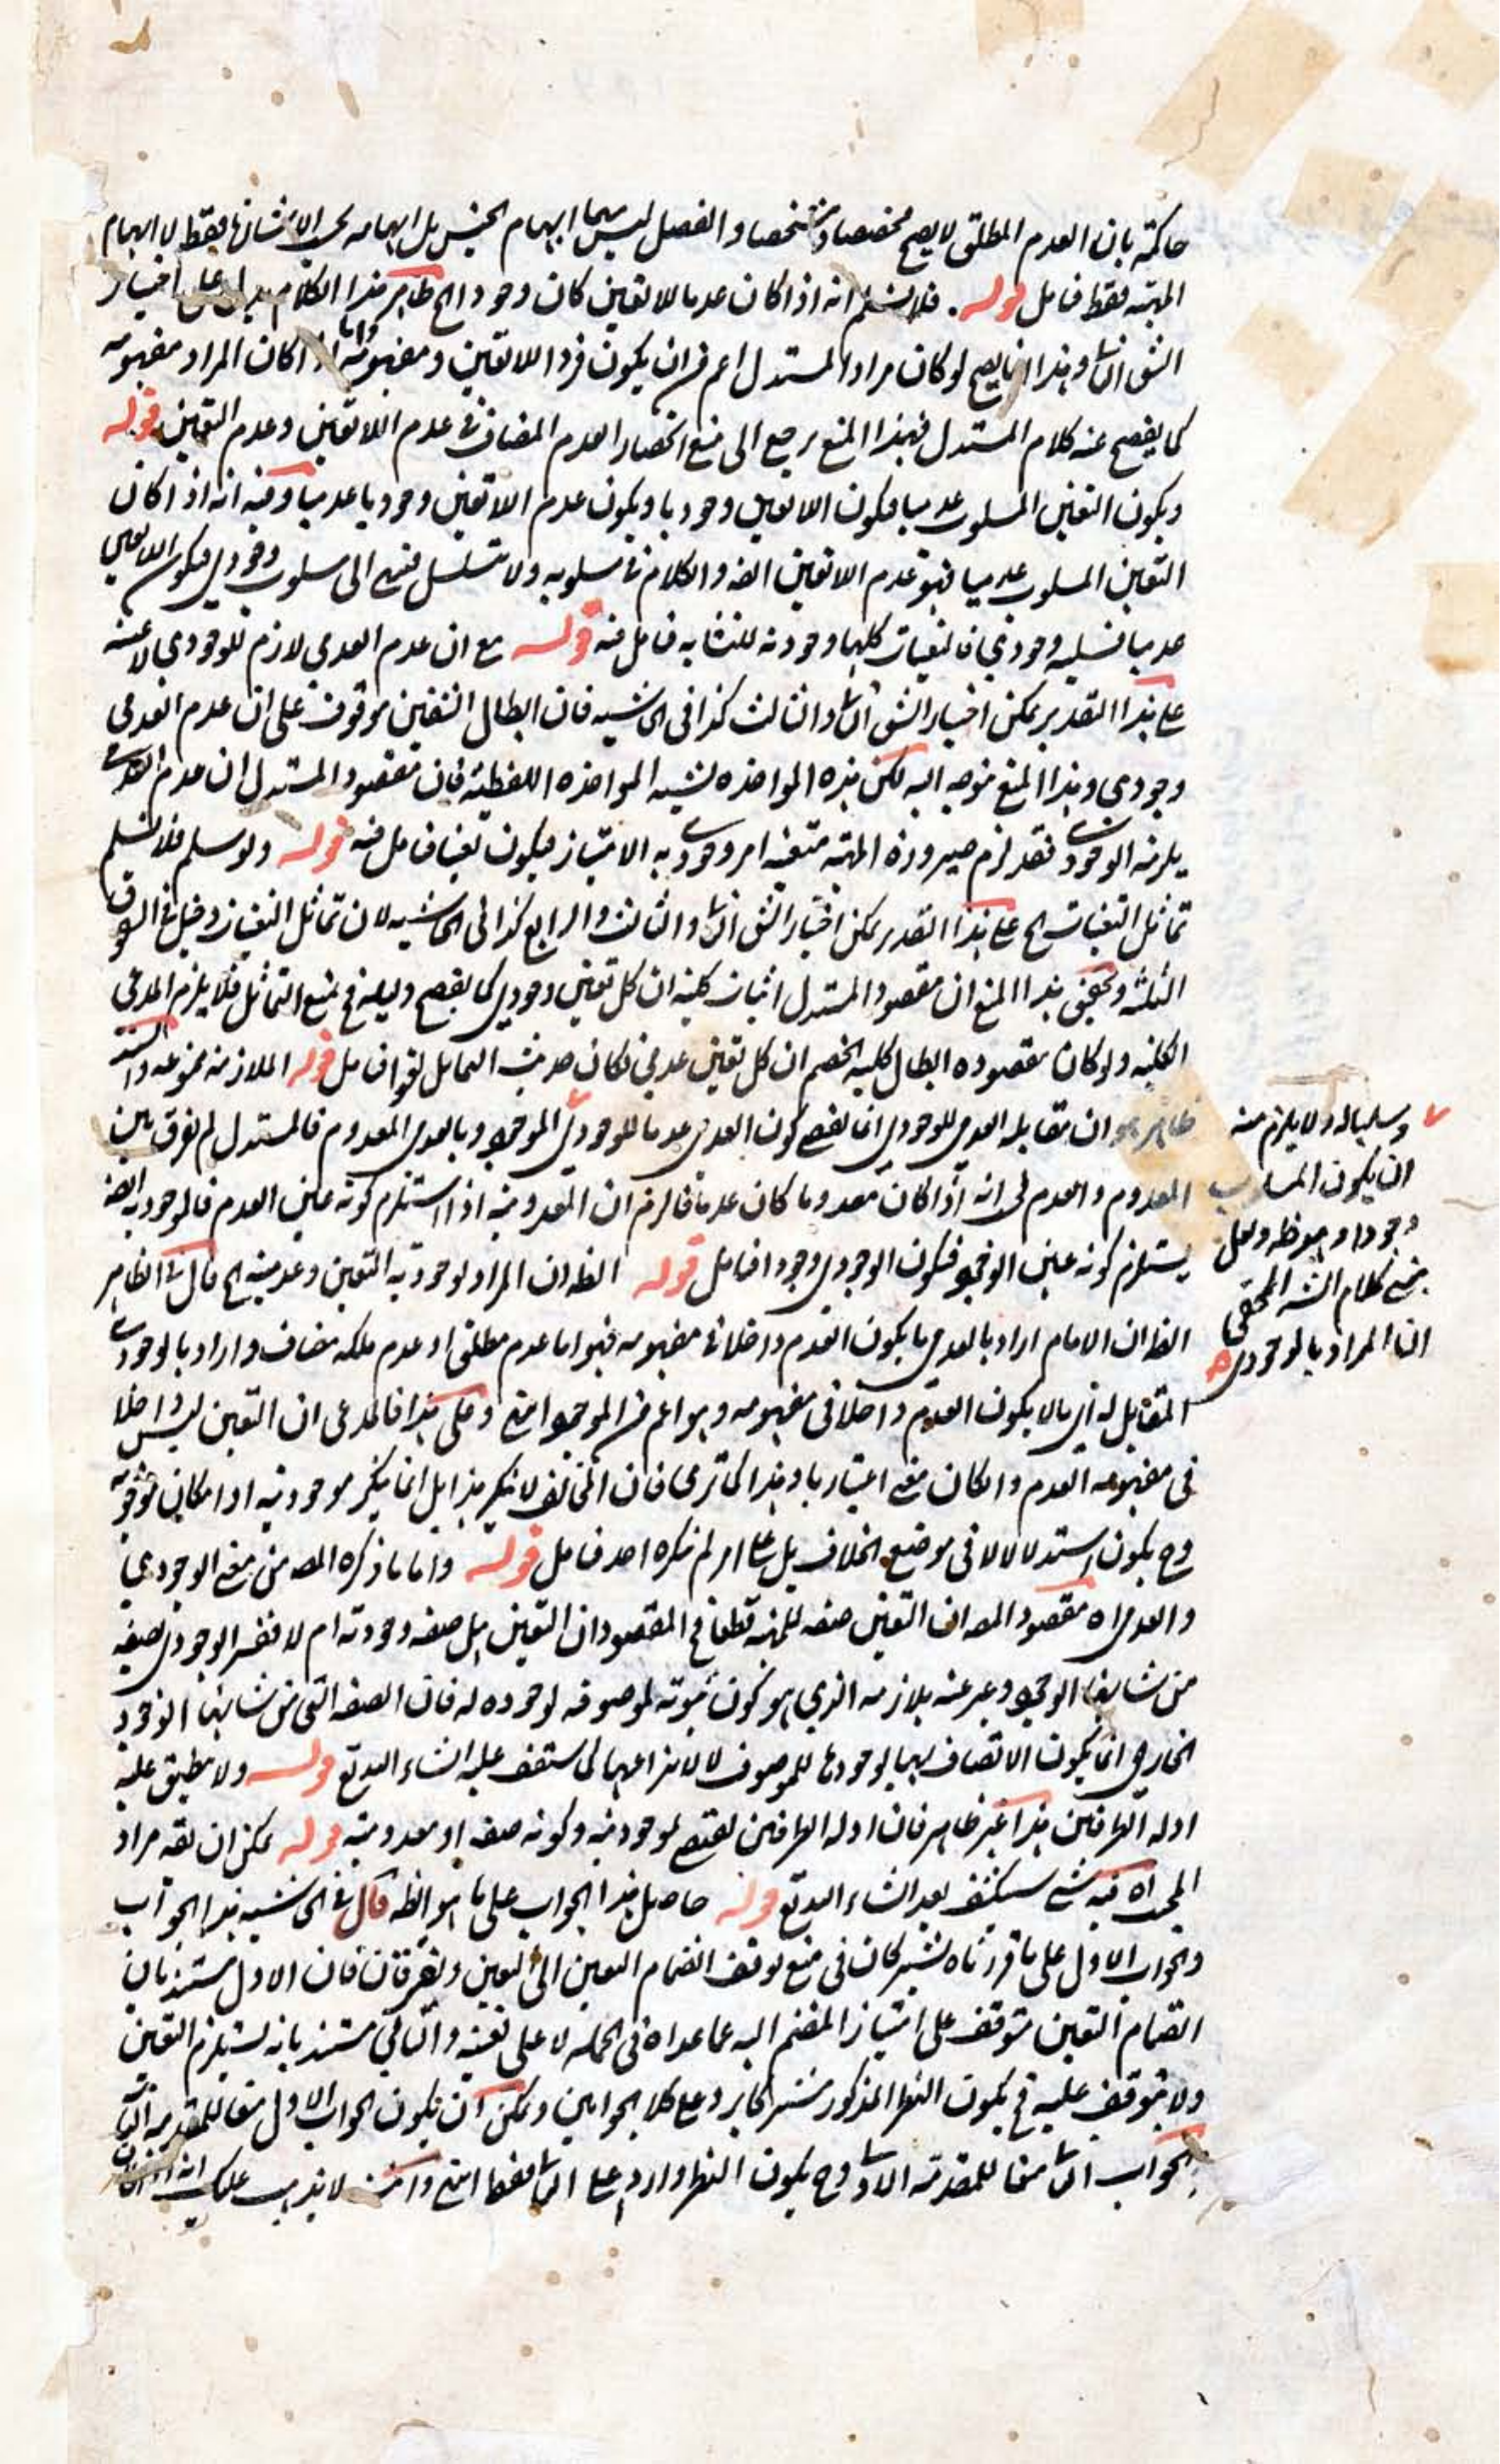 حاكمة بان العدم المطلق لا يصح مخصصا ومشخصا والفصل ليس مبهما ابهام الجنس بل ابهامه بحسب الاشارة فقط لا ابهام
المهية فقط فتامل قوله فلا نسلم انه اذا كان عدما للا تعين كان وجوديا الخ ظاهر هذا الكلام يدل على اختيار
الشق الثا وهذا انما يصح لو كان مراد المستدل اعم من ان يكون فرد اللاتعين ومفهومه واما اذا كان المراد مفهومه
كما يفصح عنه كلام المستدل فهذا المنع يرجع الى منع انحصار العدم المضاف في عدم اللاتعين وعدم التعين قوله
ويكون التعين المسلوب عدميا فيكون اللاتعين وجوديا ويكون عدم اللاتعين وجوديا عدميا وفيه انه اذا كان
التعين المسلوب عدميا فهو عدم اللاتعين ايضه والكلام في مسلوبه ولا يتسلسل فينتهي الى مسلوب وجودي فيكون اللاتعين
عدميا فسلبه وجودي فالتعينات كلها وجودية للتشابه فتامل فيه قوله مع ان عدم العدمي لازم للوجودي لا عينه
على هذا التقدير يمكن اختيار الشق الثا والثالث كذا في الحاشية فان ابطال الشقين موقوف على ان عدم العدمي
وجودي وهذا المنع متوجه اليه لكن هذه المواخذه تشبه المواخذه اللفظية فان مقصود المستدل ان عدم العدمي
يلزمه الوجودي فقد لزم صيرورة المهية متعينة امر وجودي به الامتياز فيكون تعينا فتامل فيه قوله ولو سلم فلا نسلم
تماثل التعينات الخ على هذا التقدير يمكن اختيار الشق الثا والثالث والرابع كذا في الحاشية لان تماثل التعينات دخيل في الشقوق
الثلثة وتحقيق هذا المنع ان مقصود المستدل اثبات كلية ان كل تعين وجودي كما يفصح دليله فح منع التماثل فلا يلزم المدعى
الكلية ولو كان مقصوده ابطال كلية الخصم ان كل تعين عدمي لكان حديث التماثل لغوا فتامل قوله الملازمة ممنوعة والسند
ظاهر هو ان مقابلة العدمي للوجودي انما يقتضي كون العدمي عدما للوجودي الموجود وبالعدمي المعدوم فالمستدل لم يفرق بين
المعدوم والعدم لى انه اذا كان معدوما كان عدما فالزم ان المعدومية اذا استلزم كونه عين العدم فالوجودية ايضه
يستلزم كونه عين الوجود فيكون الوجودي وجودا فتامل قوله الظ ان المراد لوجودية التعين وعدميته الخ قال في الظاهر
الظ ان الامام اراد بالعدمي ما يكون العدم داخلا في مفهومه فهو اما عدم مطلق او عدم ملكه مضاف واراد بالوجودي
المقابل له اي ما لا يكون العدم داخلا في مفهومه وهو اعم من الموجود انتهى وعلى هذا فالمدعى ان التعين ليس داخلا
في مفهومه العدم وان كان معنى اعتباريا وهذا كما ترى فان المخالف لا ينكر هذا بل انما ينكر موجوديته او امكان موجوديته
وح يكون استدلالا لا في موضع الخلاف بل على امر لم ينكره احد فتامل قوله واما ما ذكره المصه من معنى الوجودي
والعدمي اه مقصود المصه ان التعين صفه للمهية قطعا فح المقصود ان التعين هل صفه وجودية ام لا ففسر الوجودي بصفه
من شانها الوجود وعبر عنه بلازمه الذي هو كون ثبوته لموصوفه لوجوده له فان الصفه التي من شانها الوجود
الخارجي انما يكون الاتصاف بها لوجودها للموصوف لا لانتزاعها كما ستقف عليه انشاء الله تع قوله ولا ينطبق عليه
ادلة الطرفين هذا غير ظاهر فان ادلة الطرفين يقتضي لوجوديته وكونه صفه او معدوميته قوله يمكن ان يقه مراد
المجد اه فيه شئ سينكشف بعد انشاء الله تع قوله حاصل هذا الجواب على ما هو الظه قال في الحاشية هذا الجواب
والجواب الاول على ما قررناه يشتركان في منع توقف انضمام التعين الى تعين ويفترقان فان الاول مستند بان
انضمام التعين متوقف على امتياز المنضم اليه عما عداه في الجملة لا على تعينه والثاني مستند بانه يستلزم التعين
ولا يتوقف عليه فح يكون النظر المذكور مشتركا يرد على كلا الجوابين ويمكن ان يكون الجواب الاول منعا للمقدمة الثانية
والجواب الثا منعا للمقدمة الاولى وح يكون النظر واردا على الثا فقط انتهى وانت لا يذهب عليك انه
وسلبا له ولا يلزم منه
ان يكون المسلوب
وجودا وهو ظه ولعل
معنى كلام الشه المحقق
ان المراد بالوجودي